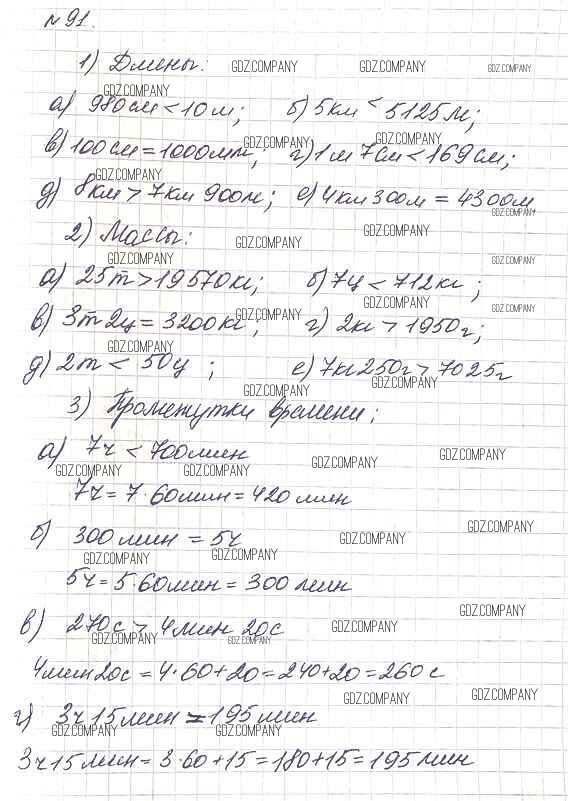 № 91.
1) Длины: GDZ.COMPANY GDZ.COMPANY GDZ.COMPANY
GDZ.COMPANY
а) 980см < 10м; б) 5км < 5125м;
GDZ.COMPANY GDZ.COMPANY
в) 100см = 1000мм; г) 1м 7см < 169см;
GDZ.COMPANY
д) 8км > 7км 900м; е) 4км 300м = 4300м
GDZ.COMPANY
2) Массы: GDZ.COMPANY GDZ.COMPANY
GDZ.COMPANY GDZ.COMPANY
а) 25т > 19570кг; б) 7ц < 712кг;
GDZ.COMPANY GDZ.COMPANY GDZ.COMPANY
в) 3т 2ц = 3200кг; г) 2кг > 1950г;
GDZ.COMPANY
д) 2т < 50ц; е) 7кг 250г > 7025г
GDZ.COMPANY GDZ.COMPANY
3) Промежутки времени:
а) 7ч < 700мин
GDZ.COMPANY GDZ.COMPANY GDZ.COMPANY GDZ.COMPANY
7ч = 7·60мин = 420мин
б) 300мин = 5ч GDZ.COMPANY GDZ.COMPANY
GDZ.COMPANY GDZ.COMPANY
5ч = 5·60мин = 300мин
в) 270с > 4мин 20с GDZ.COMPANY GDZ.COMPANY
GDZ.COMPANY GDZ.COMPANY
4мин 20с = 4·60+20 = 240+20 = 260с
GDZ.COMPANY GDZ.COMPANY
г) 3ч 15мин = 195мин
GDZ.COMPANY GDZ.COMPANY
3ч 15мин = 3·60+15 = 180+15 = 195мин